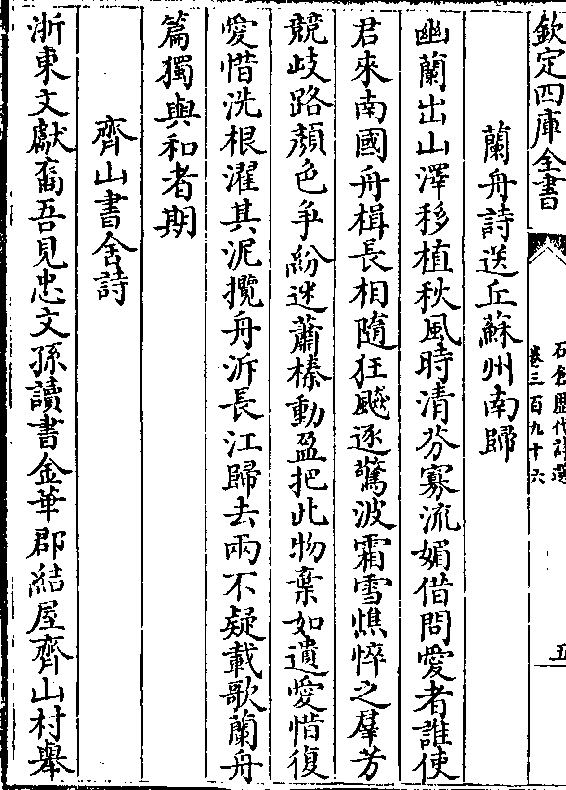 欽定四庫全書
石倉歷代詩選
卷三百九十六
五
蘭舟詩送丘蘇州南歸
幽蘭出山澤移植秋風時清芬寡流媚借問愛者誰使
君來南國舟楫長相隨狂飈逐驚波霜雪憔悴之羣芳
競歧路顔色爭紛迷蕭榛動盈把此物棄如遺愛惜復
愛惜洗根濯其泥攬舟泝長江歸去兩不疑載歌蘭舟
篇獨與和者期
齊山書舍詩
浙東文獻裔吾見忠文孫讀書金華郡結屋齊山村舉